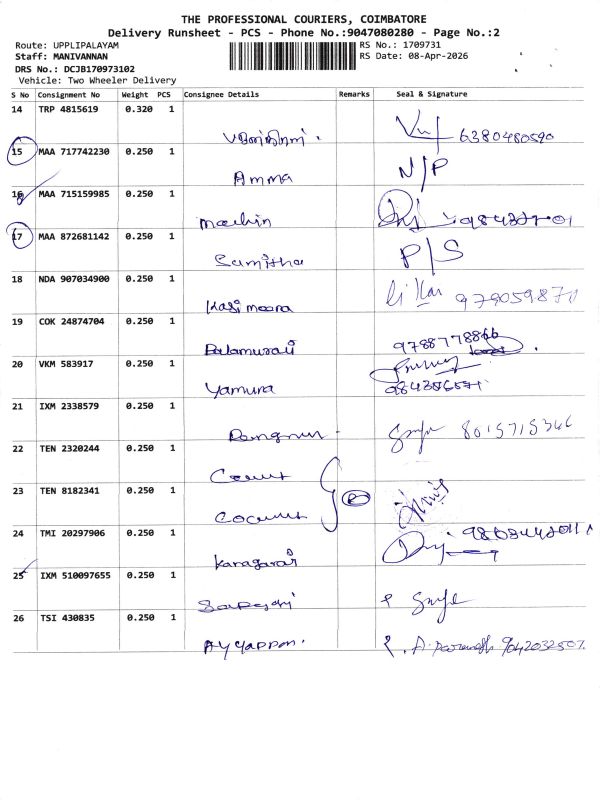 THE PROFESSIONAL COURIERS, COIMBATORE
Delivery Runsheet - PCS - Phone No.:9047080280 - Page No.:2
Route: UPPLIPALAYAM RS No.: 1709731
Staff: MANIVANNAN RS Date: 08-Apr-2026
DRS No.: DCJB170973102
Vehicle: Two Wheeler Delivery
S No Consignment No Weight PCS Consignee Details Remarks Seal & Signature
14 TRP 4815619 0.320 1
6380480590
15 MAA 717742230 0.250 1
Amma N/P
16 MAA 715159985 0.250 1
17 MAA 872681142 0.250 1
Samitha P/S
18 NDA 907034900 0.250 1
Kasi meora
19 COK 24874704 0.250 1
Balamurali
20 VKM 583917 0.250 1
Yamura
21 IXM 2338579 0.250 1
8015715346
22 TEN 2320244 0.250 1
23 TEN 8182341 0.250 1
24 TMI 20297906 0.250 1
Karagaraj
25 IXM 510097655 0.250 1
26 TSI 430835 0.250 1
Ayyappan. 9042032507.